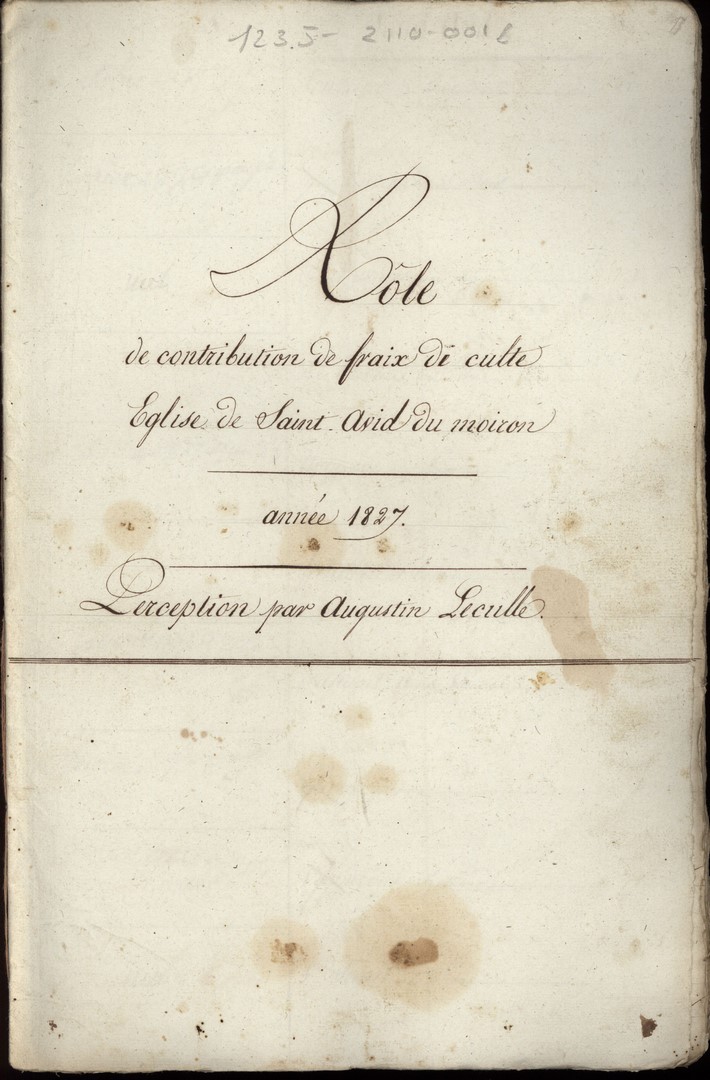 123.5- 2110-001
Rôle
de contribution de fraix de culte
Eglise de Saint. Avid du moiron
année 1827.
Perception par Augustin Leculle.